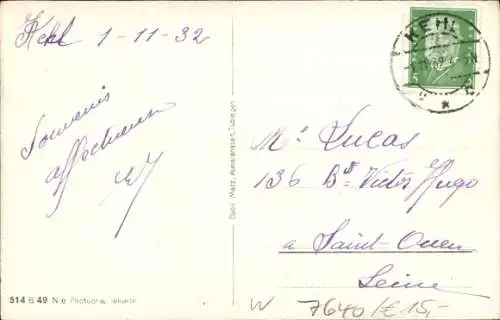 Kehl 1-11-32
Souvenir
affectueux
KEHL
Mr. Lucas
136 Bd Victor Hugo
a Saint-Ouen
Seine
Gebr. Metz, Kunstanstalt, Tübingen
514 B 49 N.e Photochromiekarte
W 7640/€ 15,-